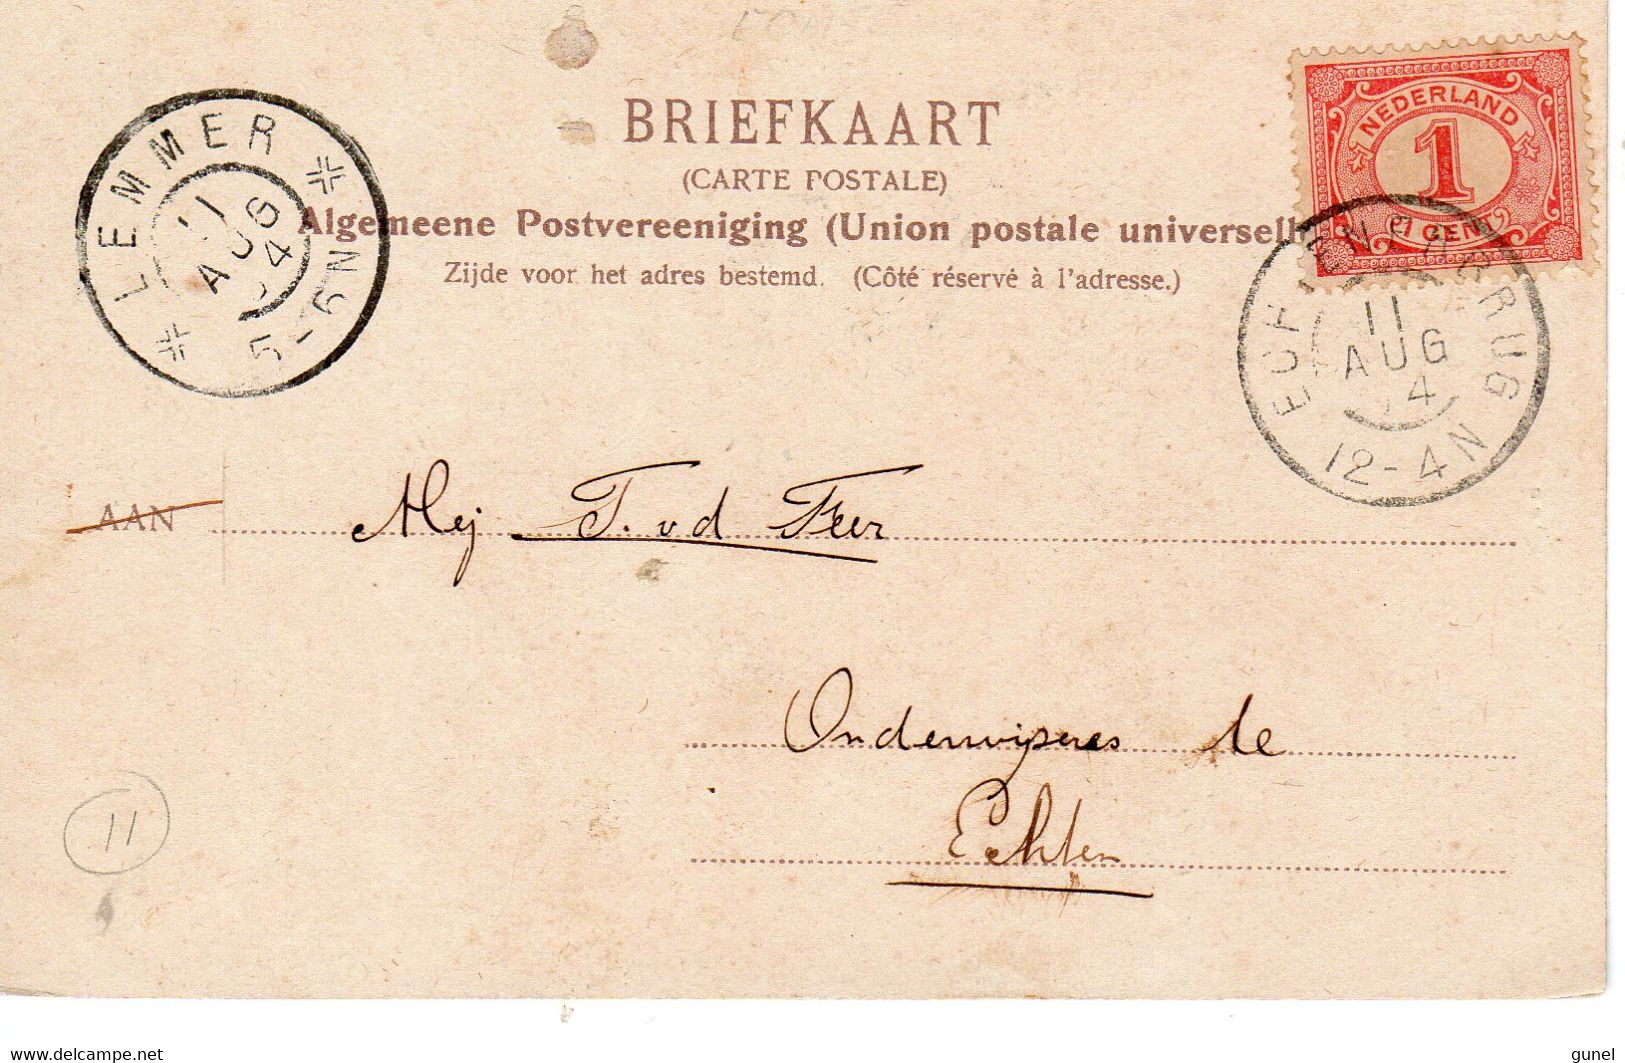 BRIEFKAART
(CARTE POSTALE)
Algemeene Postvereeniging (Union postale universell
Zijde voor het adres bestemd. (Côté réservé à l'adresse.)
LEMMER
11
AUG
4
5-6N
NEDERLAND
1
1 CENT
BRUG
11
AUG
4
12-4N
AAN
Mej T. v d Feer
Onderwijseres te
Echten
11
delcampe.net
gunel